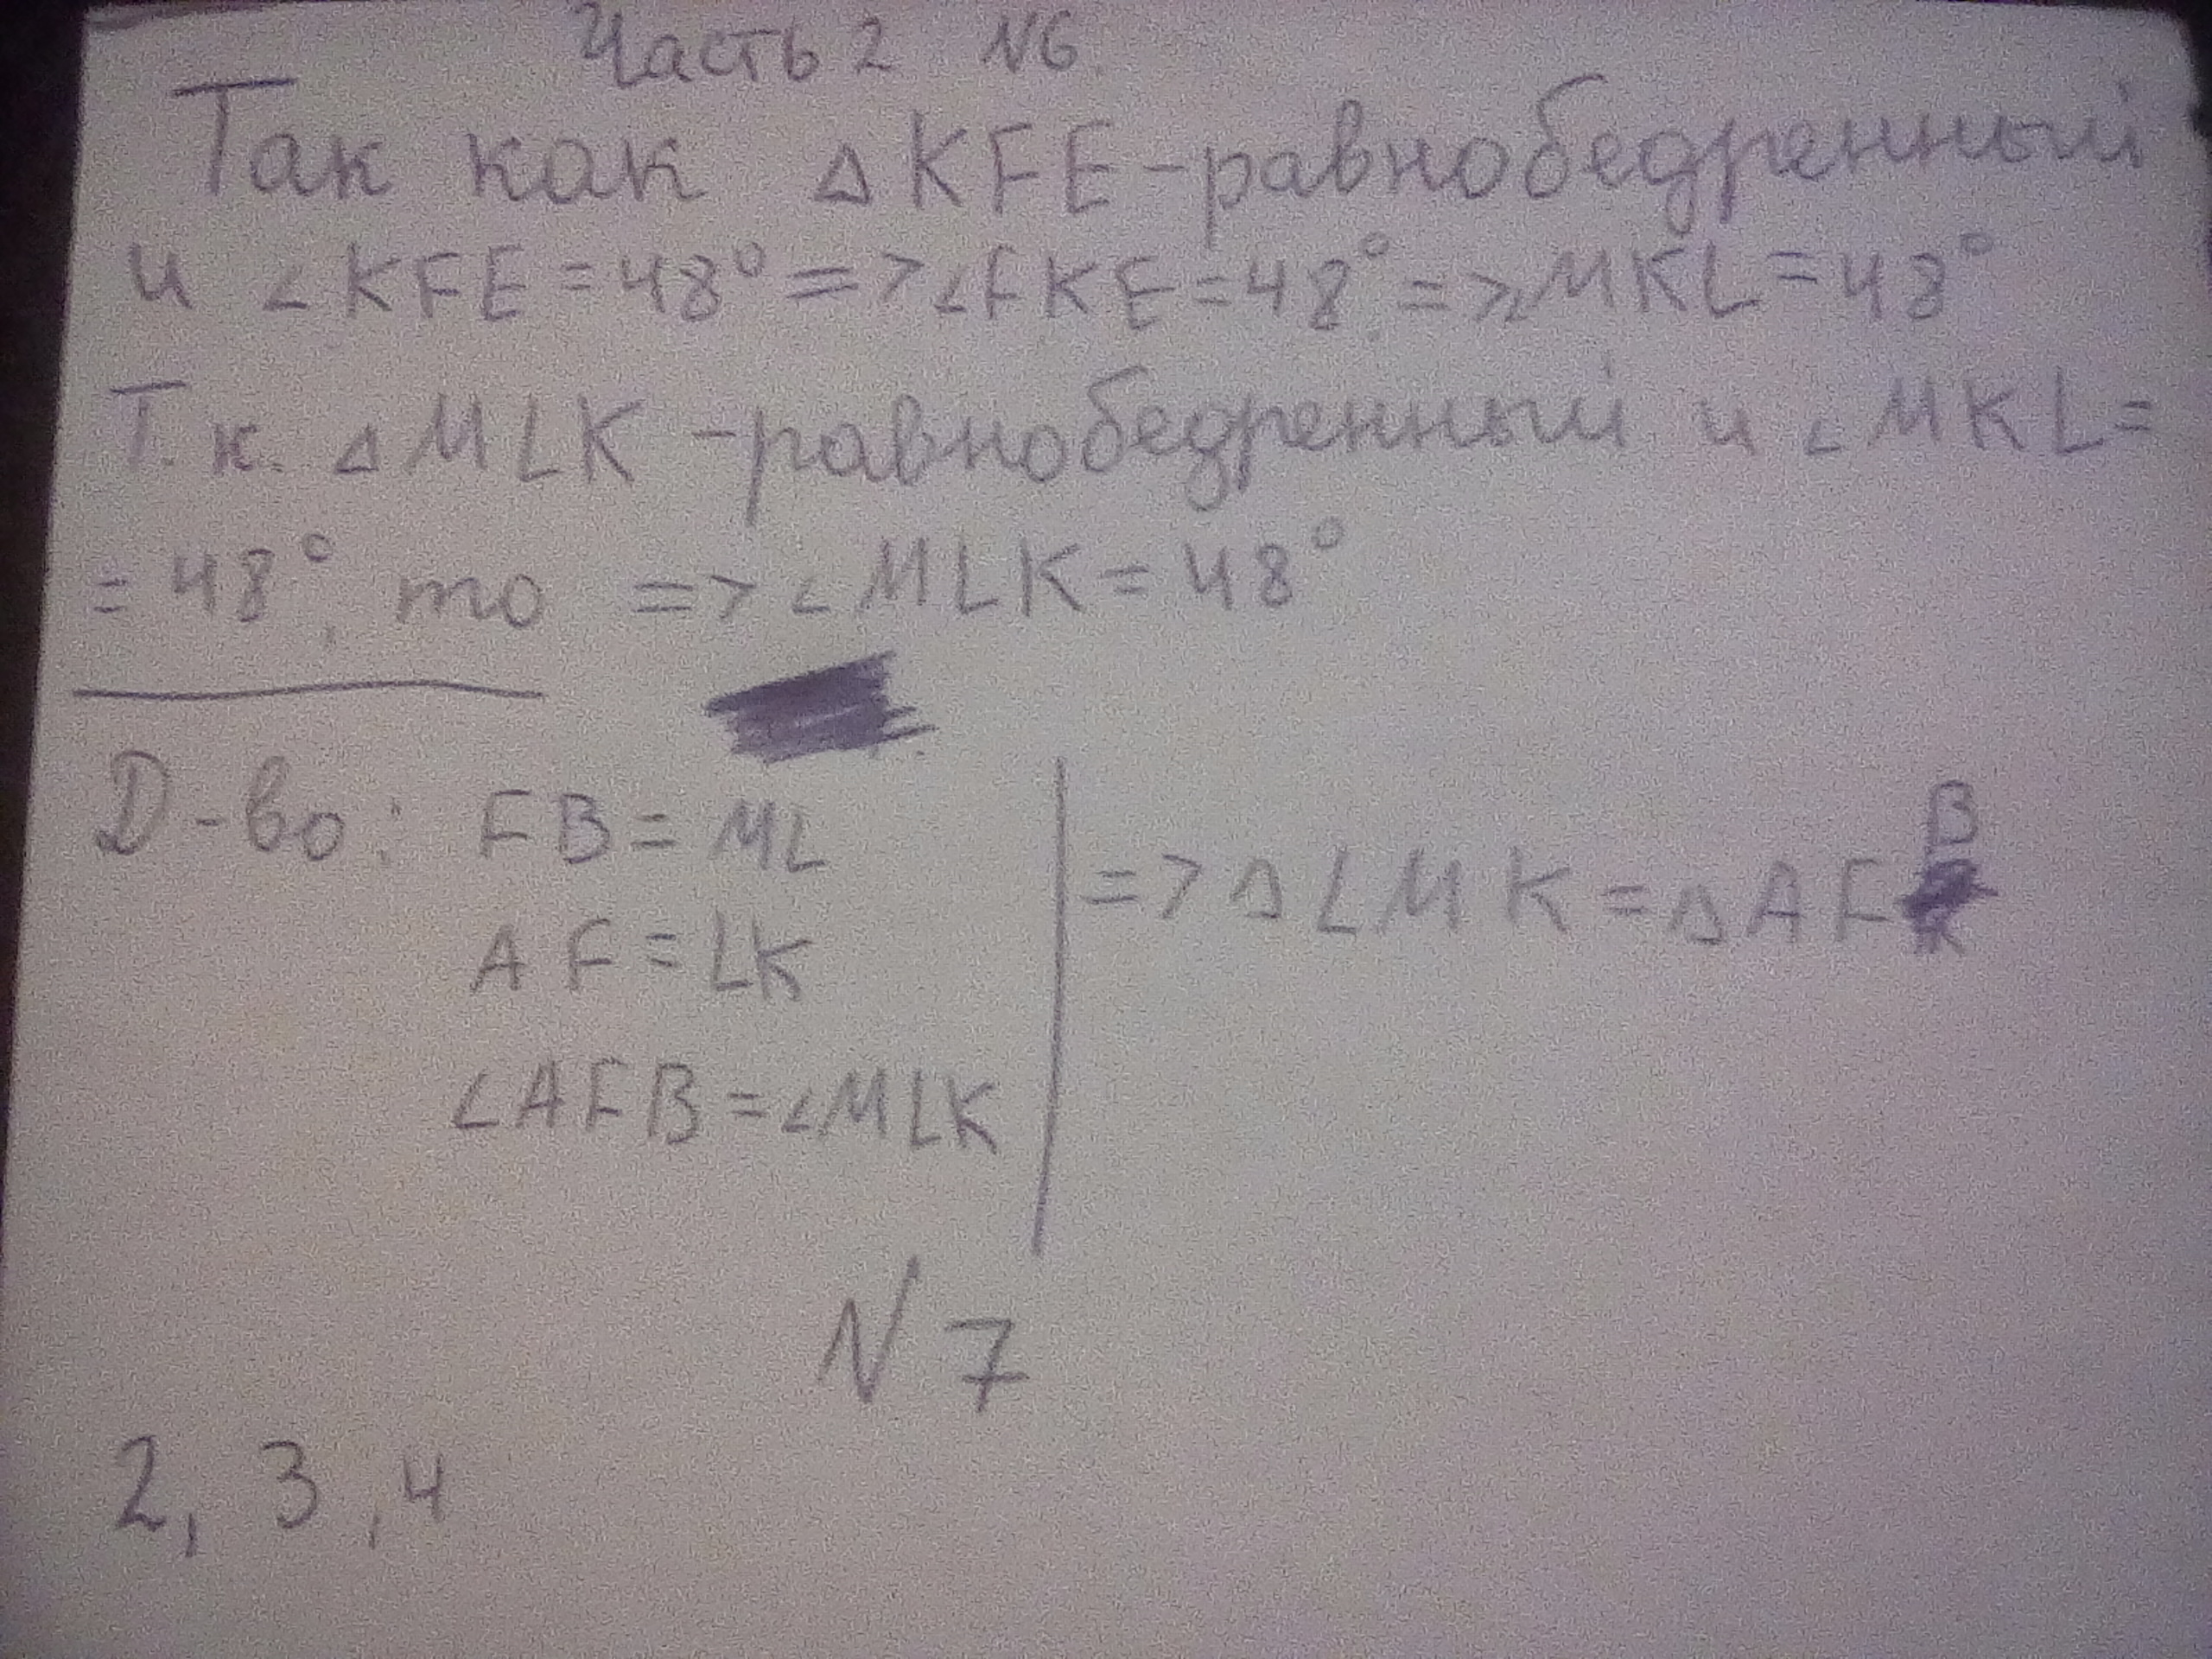 Часть 2 N6.
Так как △KFE-равнобедренный
и ∠KFE=48°=>∠FKE=48°=>∠MKL=48°
Т.к. △MLK-равнобедренный и ∠MKL=
=48°, то => ∠MLK=48°
D-во: FB=ML
AF=LK
∠AFB=∠MLK
=>△LMK=△AFB
N7
2, 3, 4